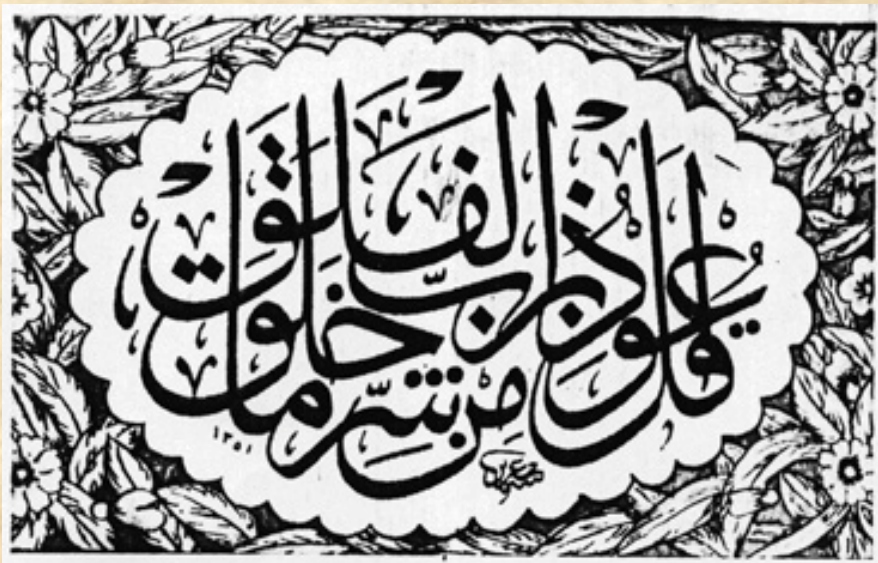 قُلْ أَعُوذُ بِرَبِّ الْفَلَقِ
مِنْ شَرِّ مَا خَلَقَ
١٣٥١